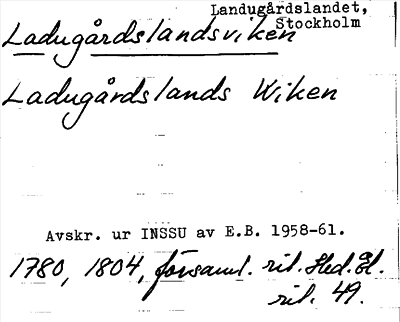 Landugårdslandet,
Stockholm
Ladugårdslandsviken
Ladugårdslands Wiken
Avskr. ur INSSU av E.B. 1958-61.
1780, 1804, församl. rit. Hed. El.
rit. 49.